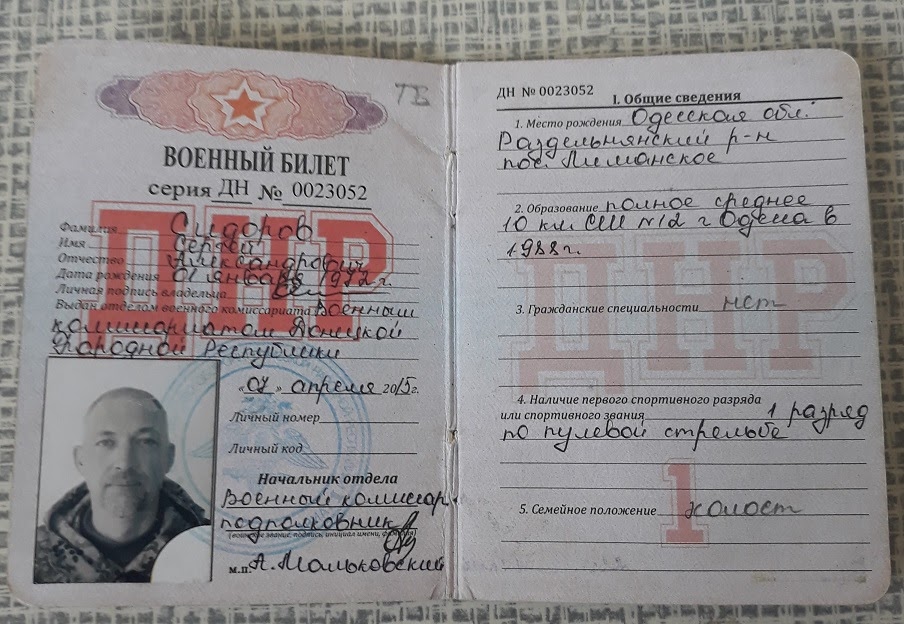 ТВ
ВОЕННЫЙ БИЛЕТ
серия ДН № 0023052
ДНР
Фамилия Сидоров
Имя Сергей
Отчество Александрович
Дата рождения 01 января 1972 г.
Личная подпись владельца
Выдан отделом военного комиссариата Военным
комиссариатом Донецкой
Народной Республики
«07» апреля 2015г.
Личный номер
Личный код
Начальник отдела
Военный комиссар
подполковник
(воинское звание, подпись, инициал имени, фамилия)
м.п. А. Мальковский
ДН № 0023052
I. Общие сведения
1. Место рождения Одесская обл.
Раздельнянский р-н
пос. Лиманское
2. Образование полное среднее
10 кл. СШ №12 г Одесса в
1988г.
ДНР
3. Гражданские специальности нет
4. Наличие первого спортивного разряда
или спортивного звания 1 разряд
по пулевой стрельбе
1
5. Семейное положение холост